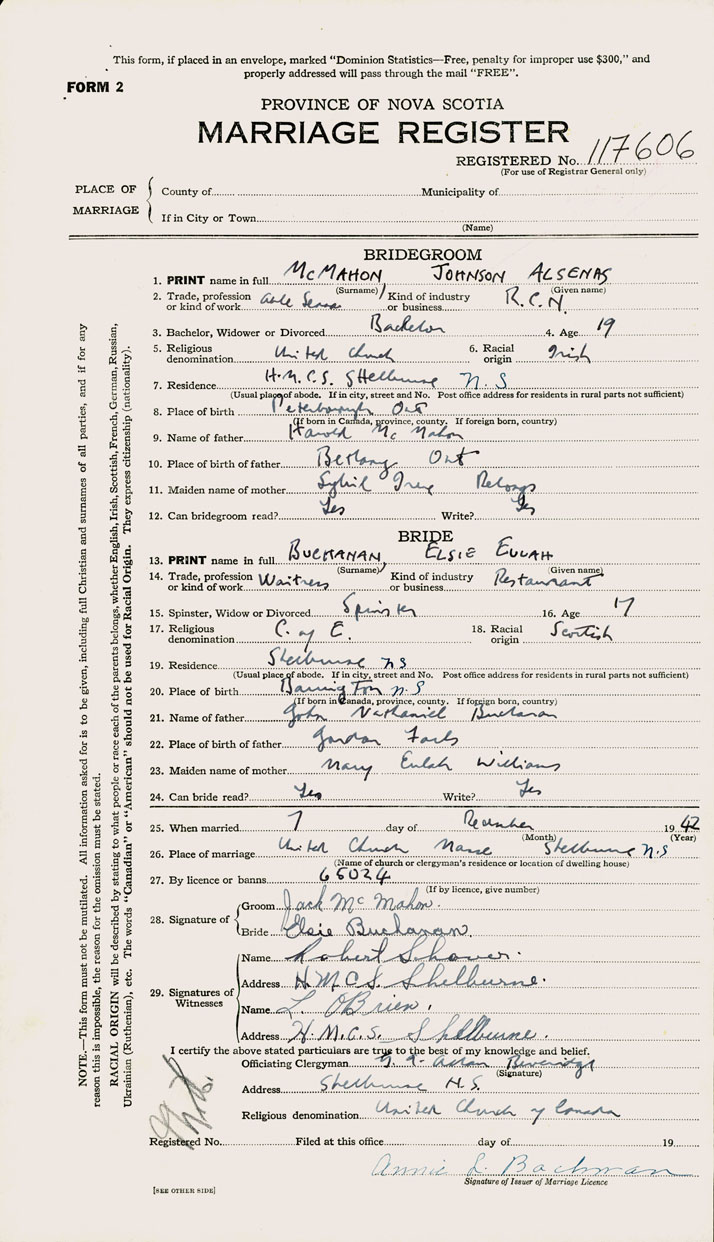 This form, if placed in an envelope, marked "Dominion Statistics—Free, penalty for improper use $300," and
properly addressed will pass through the mail "FREE".
FORM 2
PROVINCE OF NOVA SCOTIA
MARRIAGE REGISTER
REGISTERED No. 117606
(For use of Registrar General only)
PLACE OF MARRIAGE
County of Municipality of
If in City or Town
(Name)
BRIDEGROOM
1. PRINT name in full McMAHON JOHNSON ALSENAS
(Surname) (Given name)
2. Trade, profession or kind of work Able Kind of industry or business R.C.N.
3. Bachelor, Widower or Divorced Bachelor 4. Age 19
5. Religious denomination United Church 6. Racial origin Irish
7. Residence H.M.C.S. Shelburne N.S
(Usual place of abode. If in city, street and No. Post office address for residents in rural parts not sufficient)
8. Place of birth Peterborough Ont
(If born in Canada, province, county. If foreign born, country)
9. Name of father Harold McMahon
10. Place of birth of father Ont
11. Maiden name of mother Sybil
12. Can bridegroom read? Yes Write? Yes
BRIDE
13. PRINT name in full BUCHANAN, ELSIE EULAH
(Surname) (Given name)
14. Trade, profession or kind of work Waitress Kind of industry or business Restaurant
15. Spinster, Widow or Divorced Spinster 16. Age 17
17. Religious denomination C. of E. 18. Racial origin Scottish
19. Residence Shelburne NS
(Usual place of abode. If in city, street and No. Post office address for residents in rural parts not sufficient)
20. Place of birth Barrington N.S
(If born in Canada, province, county. If foreign born, country)
21. Name of father John Nathaniel Buchanan
22. Place of birth of father Gordon
23. Maiden name of mother Mary Eulah Williams
24. Can bride read? Yes Write? Yes
25. When married 7 day of December 1942
(Month) (Year)
26. Place of marriage United Church Manse Shelburne N.S
(Name of church or clergyman's residence or location of dwelling house)
27. By licence or banns 65024
(If by licence, give number)
28. Signature of
Groom Jack McMahon.
Bride Elsie Buchanan.
29. Signatures of Witnesses
Name Robert
Address H.M.C.S. Shelburne.
Name L. O'Brien.
Address H.M.C.S. Shelburne.
I certify the above stated particulars are true to the best of my knowledge and belief.
Officiating Clergyman
(Signature)
Address Shelburne N.S.
Religious denomination United Church of Canada
Registered No. Filed at this office day of 19
Annie L. Bachman
Signature of Issuer of Marriage Licence
[SEE OTHER SIDE]
NOTE.—This form must not be mutilated. All information asked for is to be given, including full Christian and surnames of all parties, and if for any
reason this is impossible, the reason for the omission must be stated.
RACIAL ORIGIN will be described by stating to what people or race each of the parents belongs, whether English, Irish, Scottish, French, German, Russian,
Ukrainian (Ruthenian), etc. The words "Canadian" or "American" should not be used for Racial Origin. They express citizenship (nationality).